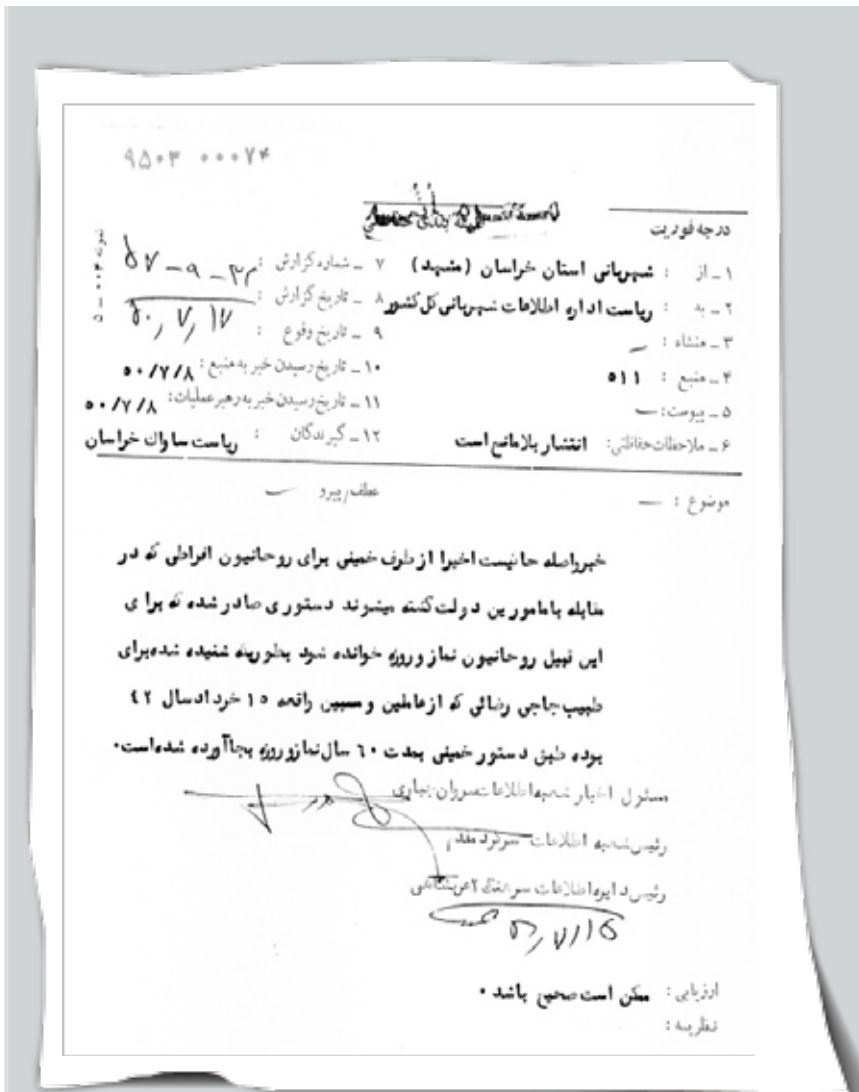 ۹۵۰۳ ۰۰۰۷۴
درجه فوریت
طبقه بندی حفاظتی
نمونه ۰۰۴ - ۵
۱ـ از : شهربانی استان خراسان (مشهد)
۲ـ به : ریاست اداره اطلاعات شهربانی کل کشور
۳ـ منشاء : ـ
۴ـ منبع : ٥١١
۵ـ پیوست: ـ
۶ـ ملاحظات حفاظتی: انتشار بلامانع است
۷ ـ شماره گزارش :
۸ ـ تاریخ گزارش : ۵۰/۷/۱۷
۹ ـ تاریخ وقوع :
۱۰ ـ تاریخ رسیدن خبر به منبع : ٥٠/٧/٨
۱۱ ـ تاریخ رسیدن خبر به رهبر عملیات: ٥٠/٧/٨
۱۲ ـ گیرندگان : ریاست ساواک خراسان
موضوع : ـ
عطف/پیرو ـ
خبرواصله حاکیست اخیرا از طرف خمینی برای روحانیون افراطی که در
مقابله بامامورین دولت کشته میشوند دستوری صادر شده که برای
این قبیل روحانیون نماز و روزه خوانده شود بطوریکه شنیده شده برای
طیب حاجی رضائی که از عاملین و مسببین واقعه ١٥ خرداد سال ٤٢
بوده طبق دستور خمینی بمدت ٦٠ سال نماز و روزه بجا آورده شده است.
مسئول اخبار شعبه اطلاعات سروان جباری
رئیس شعبه اطلاعات سرگرد مقدم
رئیس دایره اطلاعات
ارزیابی : ممکن است صحیح باشد .
نظریه :